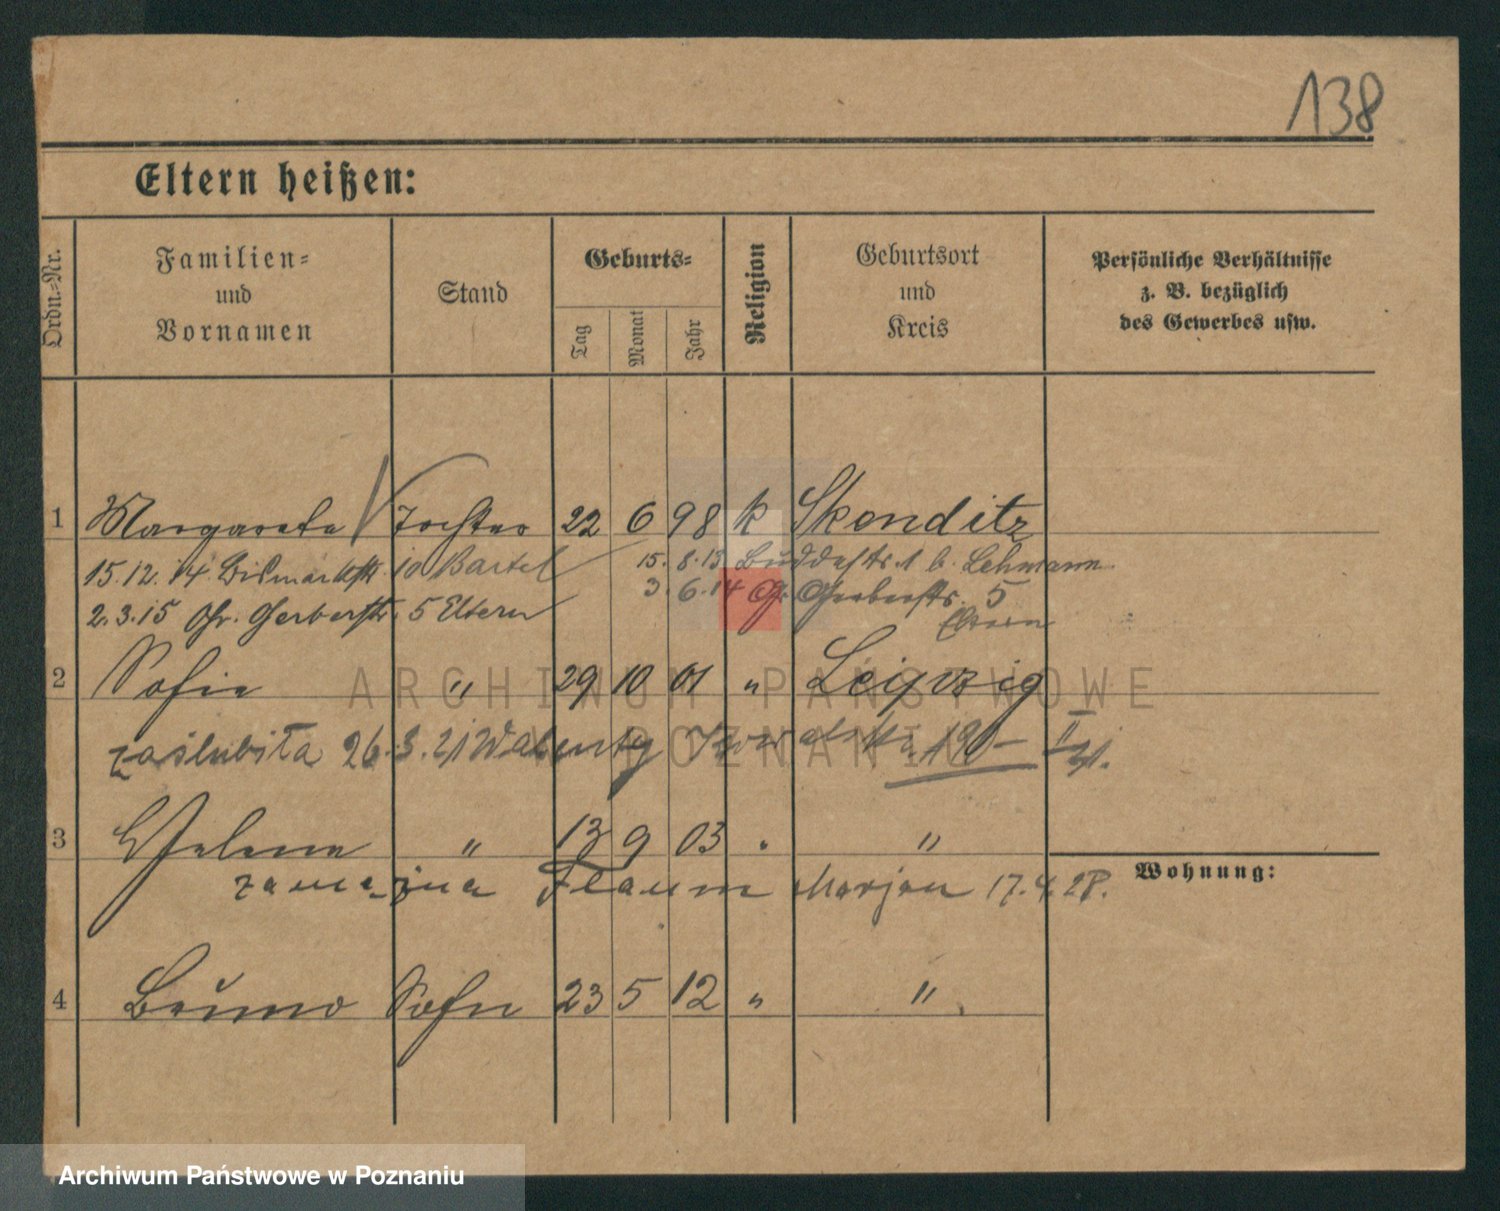 138
Eltern heißen:
Ordn.-Nr.
Familien- und Vornamen
Stand
Geburts-
Tag
Monat
Jahr
Religion
Geburtsort und Kreis
Persönliche Verhältnisse z. B. bezüglich des Gewerbes usw.
1 Margarete Tochter 22 6 98 k Skeuditz
15.12.14. Bismarckstr. 10 Bartel
15.8.13 Buddestr. 1 b. Lehmann
2.3.15 Gr. Gerberstr. 5 Eltern
3.6.14 Gr. Gerberstr. 5
Eltern
2 Sofie " 29 10 01 " Leipzig
zaślubiła 26.3.21 Walenty
3 Helene " 13 9 03 " "
Wohnung:
zamężna Flaum Marjan 17.4.28.
4 Bruno Sohn 23 5 12 " "
ARCHIWUM PAŃSTWOWE
W POZNANIU
Archiwum Państwowe w Poznaniu